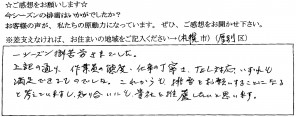 ☆ご感想をお願いします☆
今シーズンの排雪はいかがでしたか?
お客様の声が、私たちの原動力になっています。ぜひ、ご感想をお聞かせ下さい。
※差支えなければ、お住まいの地域をご記入ください→(札幌市)(厚別区)
一シーズン御苦労さまでした。
上記の通り、作業員の態度・仕事の丁寧さ、TEL対応、いずれも
満足できるものでした。これからも排雪をお願いすることになる
と考えていますし、知り合いにも貴社を推薦したいと思います。